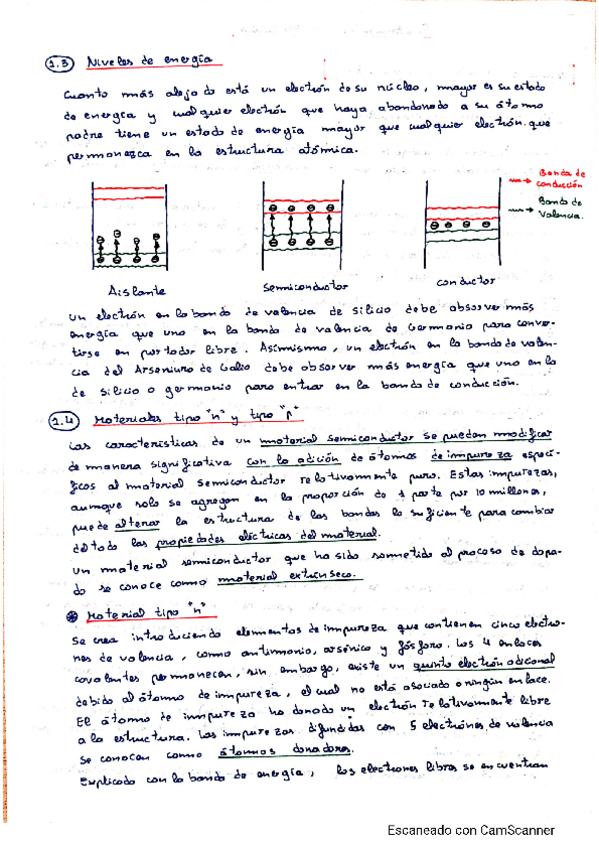 1.3 Niveles de energía
Cuanto más alejado está un electrón de su núcleo, mayor es su estado
de energía y cualquier electrón que haya abandonado a su átomo
padre tiene un estado de energía mayor que cualquier electrón que
permanezca en la estructura atómica.
Banda de
conducción
Banda de
Valencia.
Aislante
Semiconductor
conductor
un electrón en la banda de valencia de silicio debe absorver más
energía que uno en la banda de valencia de Germanio para conver-
tirse en portador libre. Asimismo, un electrón en la banda de valen-
cia del Arseniuro de Galio debe absorver más energía que uno en la
de silicio o germanio para entrar en la banda de conducción.
1.4 Materiales tipo "n" y tipo "p"
Las características de un material semiconductor se pueden modificar
de manera significativa con la adición de átomos de impureza especí-
ficos al material semiconductor relativamente puro. Estas impurezas,
aunque solo se agregen en la proporción de 1 parte por 10 millones,
puede alterar la estructura de las bandas lo suficiente para cambiar
del todo las propiedades eléctricas del material.
un material semiconductor que ha sido sometido al proceso de dopa-
do se conoce como material extrínseco.
Material tipo "n"
Se crea introduciendo elementos de impureza que contienen cinco electro-
nes de valencia, como antimonio, arsénico y fósforo. Los 4 enlaces
covalentes permanecen, sin embargo, existe un quinto electrón adicional
debido al átomo de impureza, el cual no está asociado a ningún enlace.
El átomo de impureza ha donado un electrón relativamente libre
a la estructura. Las impurezas difundidas con 5 electrones de valencia
se conocen como átomos donadores.
Explicado con la banda de energía, los electrones libres se encuentran
Escaneado con CamScanner